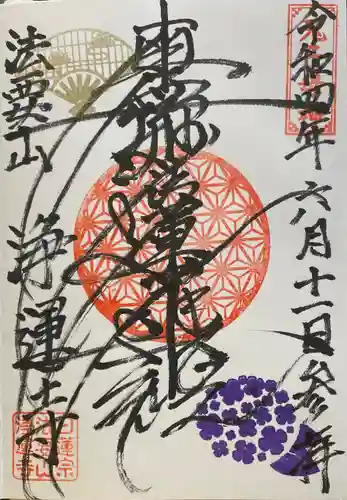 令和四年
六月十一日参拝
南無妙法蓮華経
浄運寺
日蓮宗